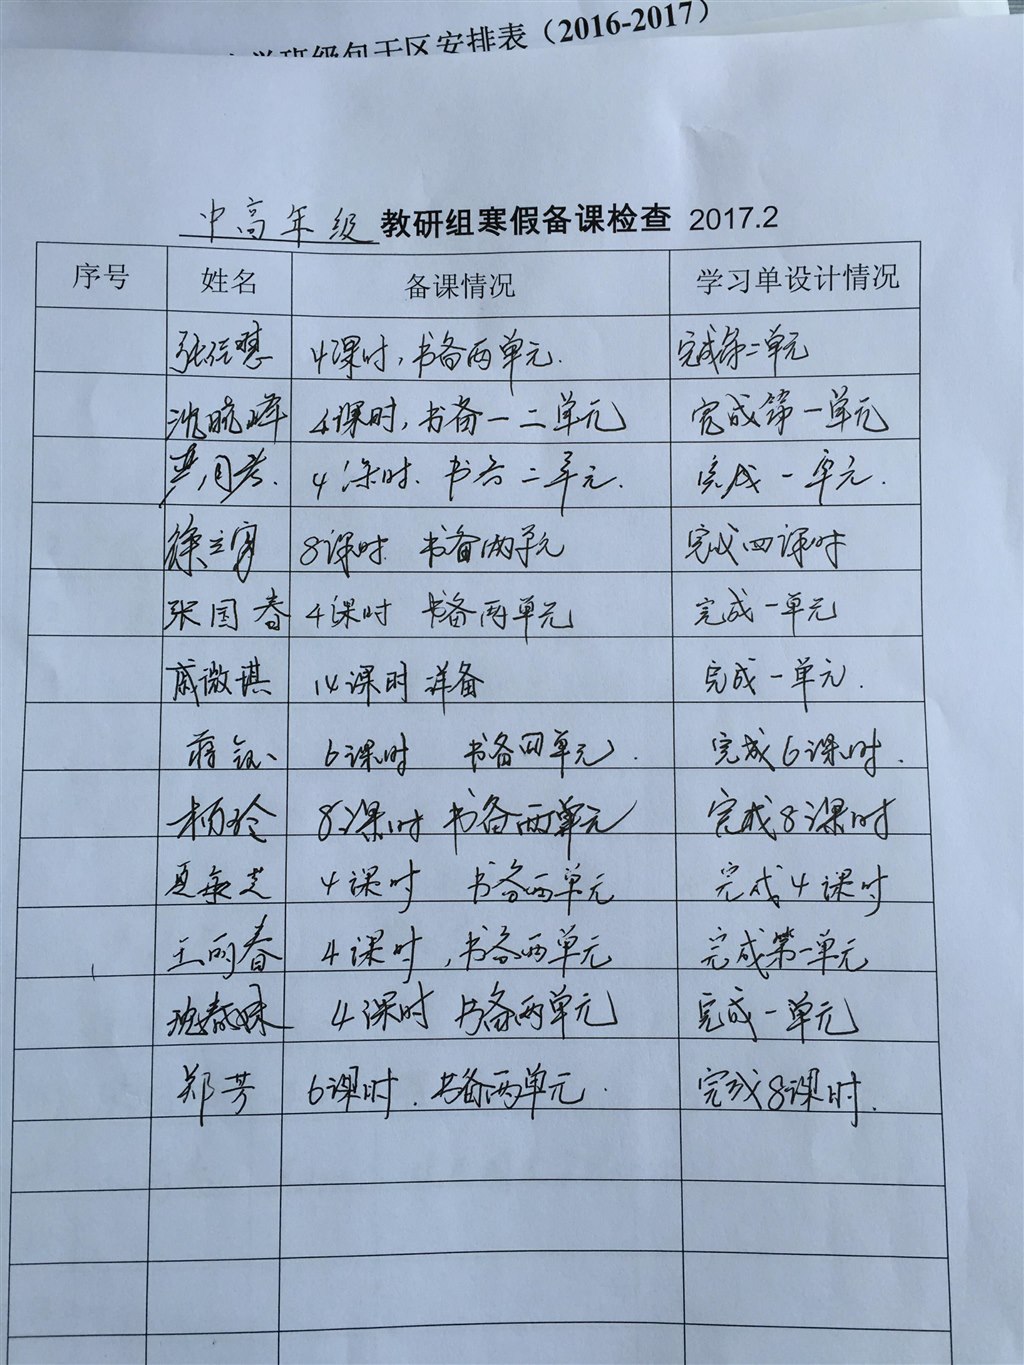 班级包干区安排表（2016-2017）
中高年级 教研组寒假备课检查 2017.2
序号 姓名 备课情况 学习单设计情况
4课时，书备两单元. 完成第二单元
沈晓峰 4课时，书备一二单元 完成第一单元
4课时. 书备二单元. 完成一单元.
徐立 8课时 书备两单元 完成四课时
张国春 4课时 书备两单元 完成一单元
戚微琪 14课时 详备 完成一单元.
蒋 6课时 书备四单元. 完成6课时.
杨玲 8课时 书备两单元 完成8课时
夏 4课时 书备两单元 完成4课时
王丽春 4课时，书备两单元 完成第一单元
4课时 书备两单元 完成一单元
郑芳 6课时. 书备两单元. 完成8课时.